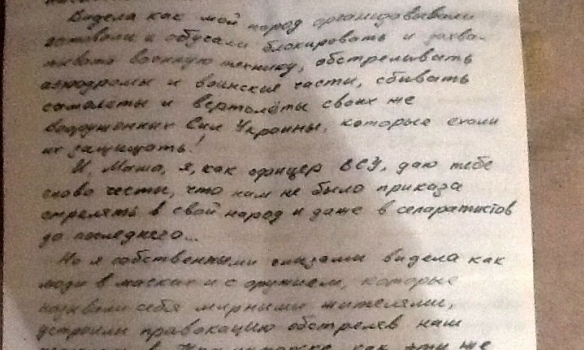 Видела как мой народ организовывали
готовили и обучали блокировать и захва-
тывать военную технику, обстреливать
аэродромы и воинские части, сбивать
самолеты и вертолёты своих же
вооруженных Сил Украины, которые ехали
их защищать!
И, Маша, я, как офицер ВСУ, даю тебе
слово чести, что нам не было приказа
стрелять в свой народ и даже в сепаратистов
до последнего...
Но я собственными глазами видела как
люди в масках и с оружием, которые
называли себя мирными жителями,
устроили провокацию обстреляв наш
в как эти же